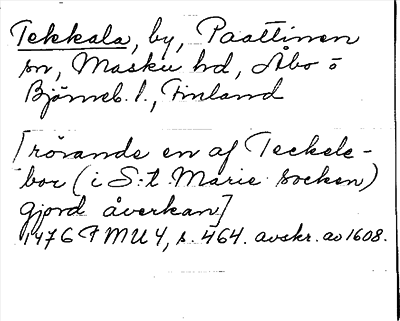 Tekkala, by, Paattinen
sn, Masku hd, Åbo o
Björneb. l., Finland
[rörande en af Teckele-
bor (i S:t Marie socken)
gjord åverkan]
1476 FMU 4, s. 464. avskr. av 1608.